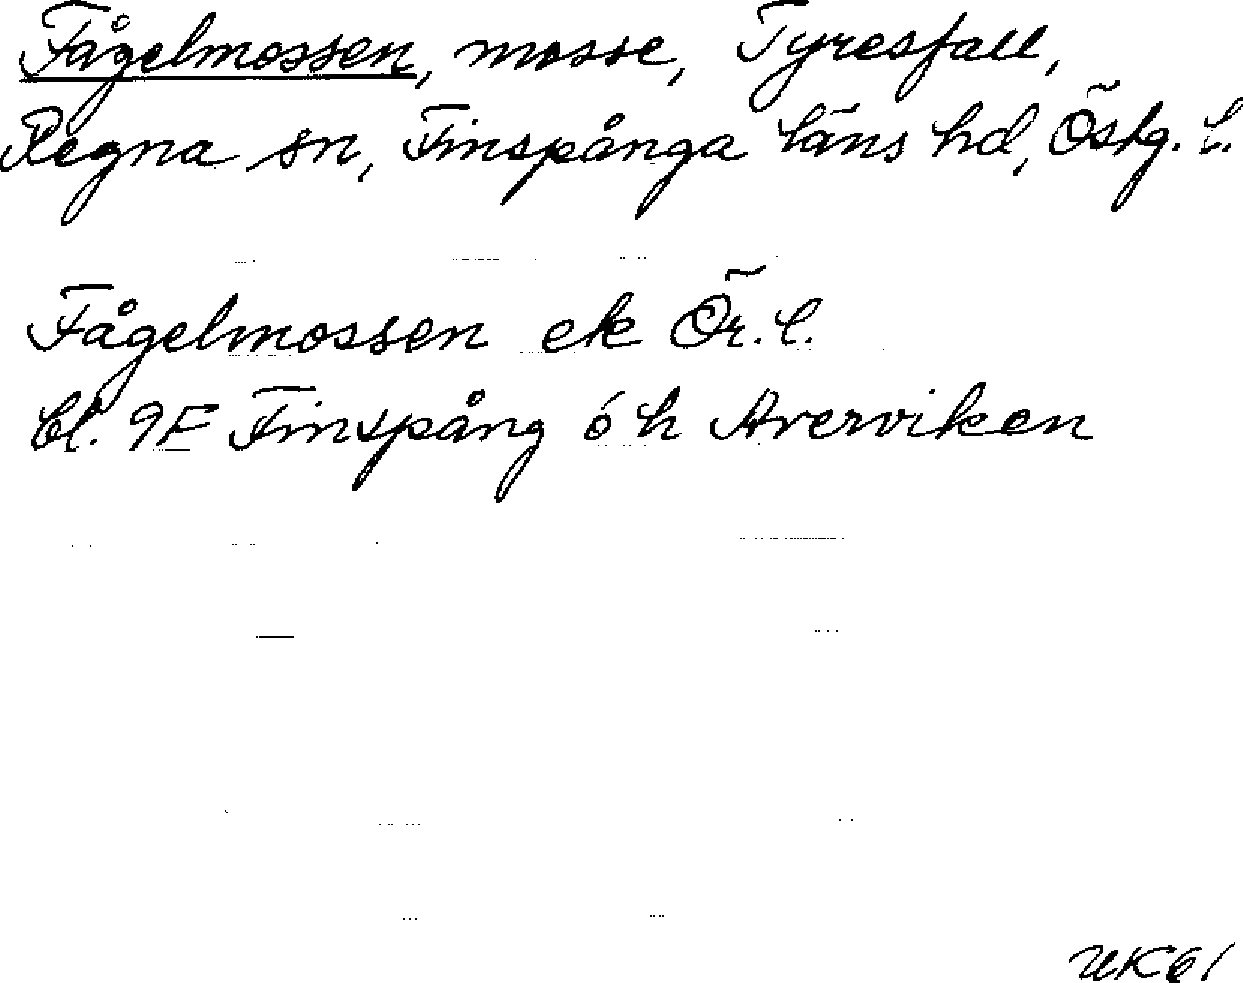 Fågelmossen, mosse, Tyresfall,
Regna sn, Finspånga läns hd, Östg. l.
Fågelmossen ek Ör. l.
bl. 9F Finspång ö h Averviken
UK61